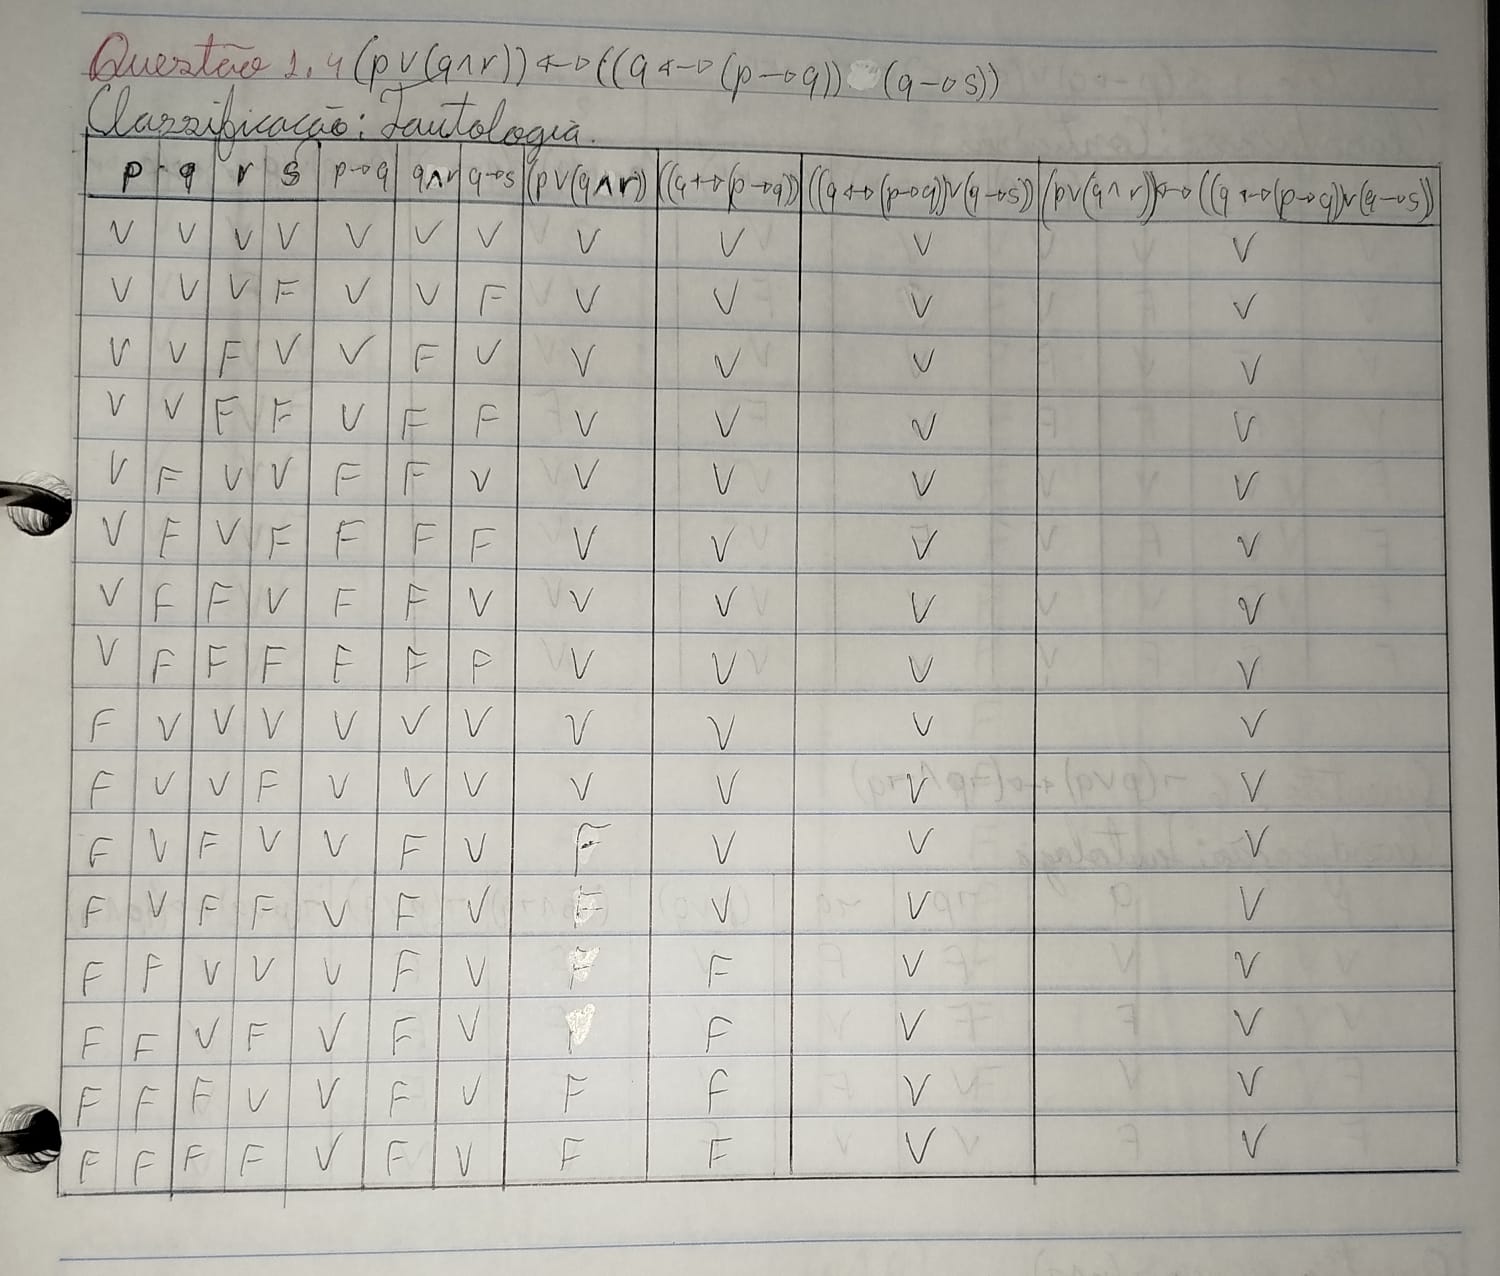 Questão 1.4 (p∨(q∧r)) ↔ ((q ↔ (p→q)) (q→s))
Classificação: Tautologia.
p q r s p→q q∧r q→s (p∨(q∧r)) ((q↔(p→q)) ((q↔(p→q))∨(q→s)) (p∨(q∧r))↔((q↔(p→q))∨(q→s))
V V V V V V V V V V V
V V V F V V F V V V V
V V F V V F V V V V V
V V F F V F F V V V V
V F V V F F V V V V V
V F V F F F F V V V V
V F F V F F V V V V V
V F F F F F F V V V V
F V V V V V V V V V V
F V V F V V V V V V V
F V F V V F V F V V V
F V F F V F V F V V V
F F V V V F V F F V V
F F V F V F V F V V
F F F V V F V F F V V
F F F F V F V F F V V